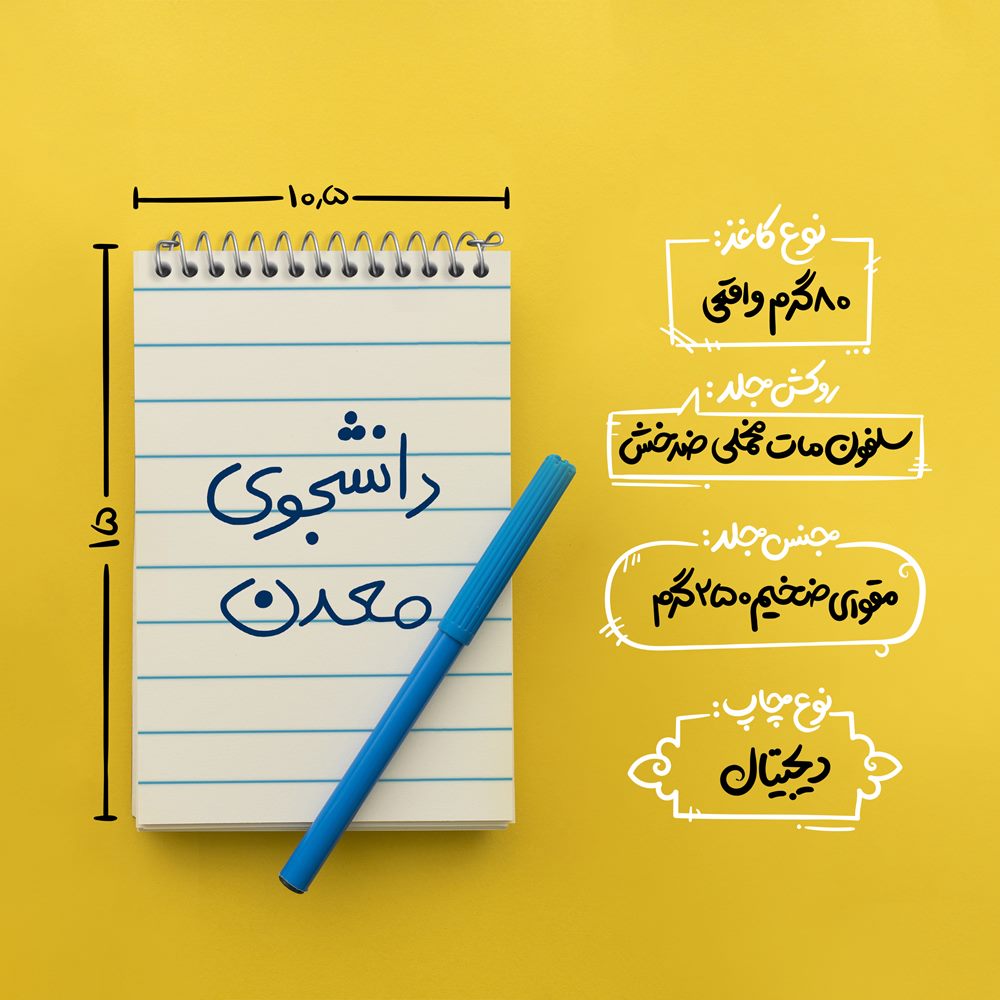 ۱۰,۵
۱۵
دانشجوی
معدن
نوع کاغذ:
۸۰گرم واقعی
روکش جلد:
سلفون مات مخملی ضدخش
جنس جلد:
مقوای ضخیم ۲۵۰گرم
نوع چاپ:
دیجیتال